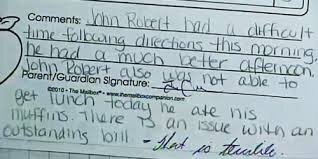 Comments: John Robert had a difficult
time following directions this morning,
he had a much better afternoon.
John Robert also was not able to
Parent/Guardian Signature:
©2010 • The Mailbox® • www.themailboxcompanion.com
get lunch today he ate his
muffins. There is an issue with an
outstanding bill - that is terrible.